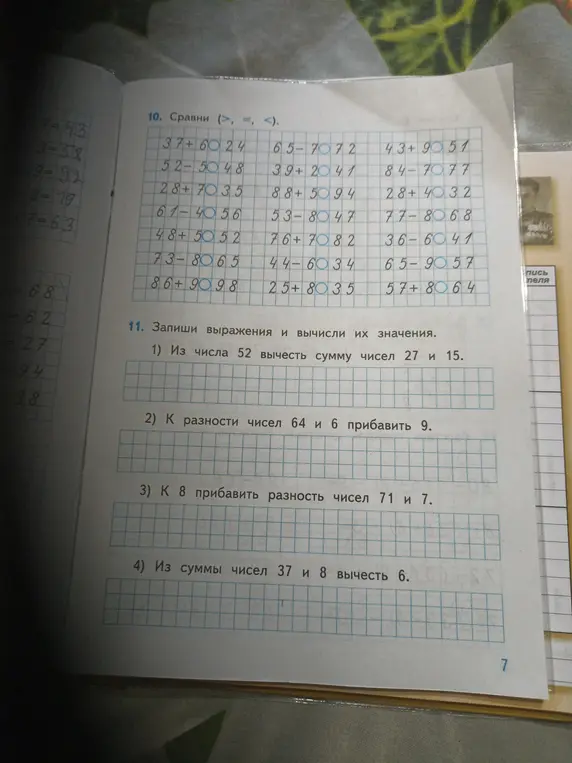 10. Сравни (>, =, <).
37+6○24 65-7○72 43+9○51
52-5○48 39+2○41 84-7○77
28+7○35 88+5○94 28+4○32
61-4○56 53-8○47 77-8○68
48+5○52 76+7○82 36-6○41
73-8○65 44-6○34 65-9○57
86+9○98 25+8○35 57+8○64
11. Запиши выражения и вычисли их значения.
1) Из числа 52 вычесть сумму чисел 27 и 15.
2) К разности чисел 64 и 6 прибавить 9.
3) К 8 прибавить разность чисел 71 и 7.
4) Из суммы чисел 37 и 8 вычесть 6.
7